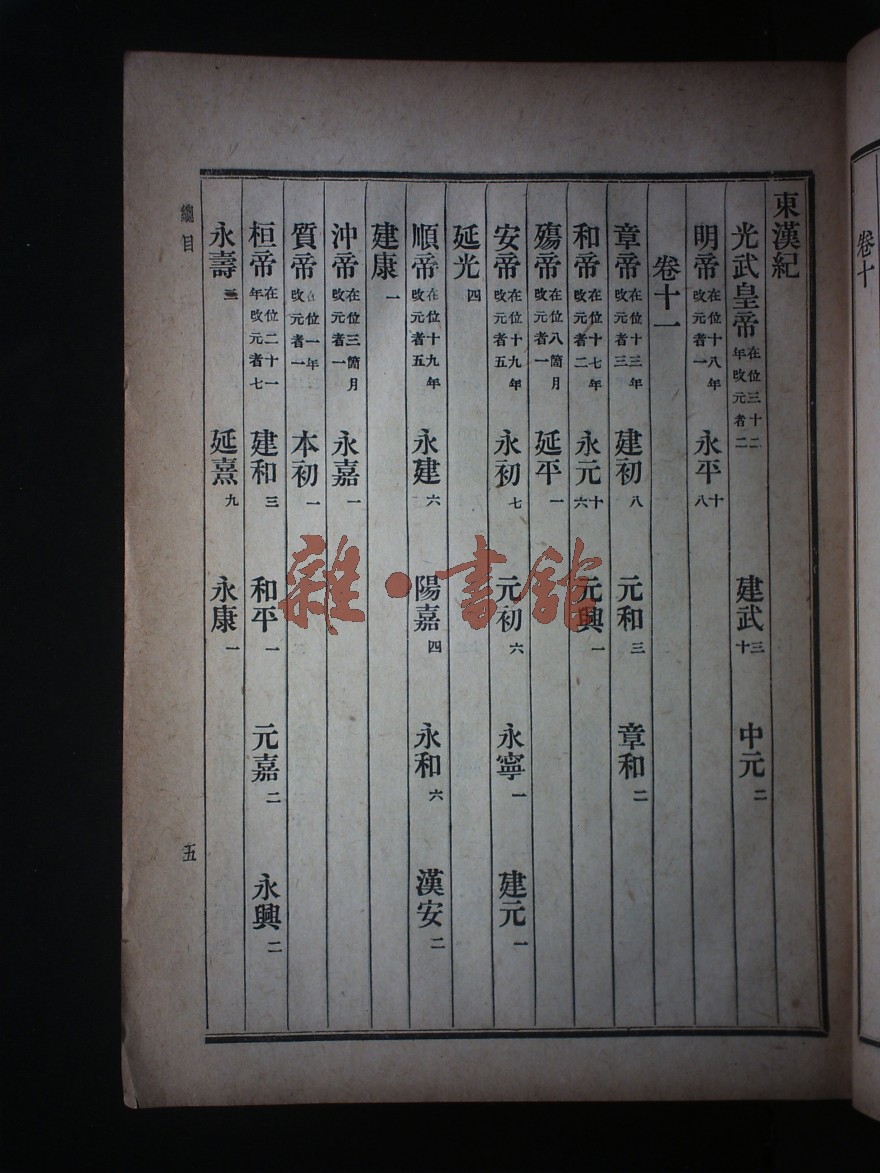 東漢紀
光武皇帝 在位三十二年改元者二 建武三十 中元二
明帝 在位十八年改元者一 永平十八
卷十一
章帝 在位十三年改元者三 建初八 元和三 章和二
和帝 在位十七年改元者二 永元十六 元興一
殤帝 在位八箇月改元者一 延平一
安帝 在位十九年改元者五 永初七 元初六 永寧一 建元一
延光四
順帝 在位十九年改元者五 永建六 陽嘉四 永和六 漢安二
建康一
沖帝 在位三箇月改元者一 永嘉一
質帝 在位一年改元者一 本初一
桓帝 在位二十一年改元者七 建和三 和平一 元嘉二 永興二
永壽三 延熹九 永康一
總目
五
卷十
雜·書館